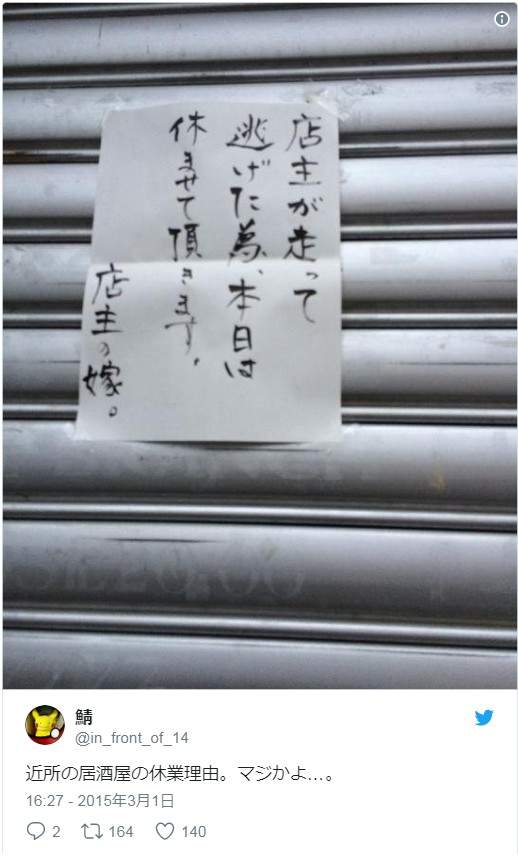 店主が走って
逃げた為、本日は
休ませて頂きます。
店主の嫁。
鯖
@in_front_of_14
近所の居酒屋の休業理由。マジかよ…。
16:27 - 2015年3月1日
2 164 140